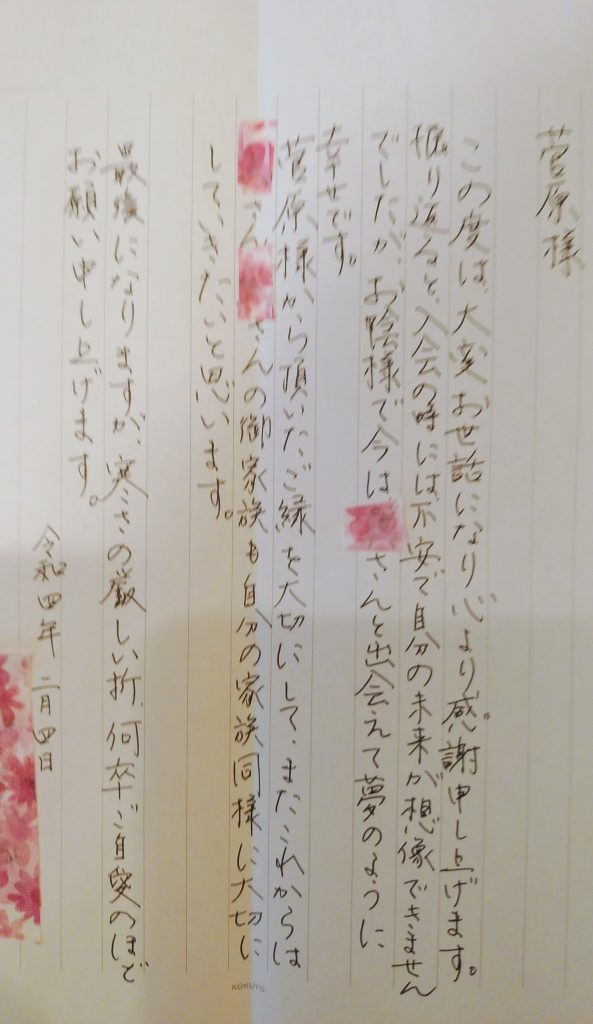 菅原様
この度は、大変お世話になり心より感謝申し上げます。
振り返ると、入会の時には不安で自分の未来が想像できません
でしたが、お陰様で今は さんと出会えて夢のように
幸せです。
菅原様から頂いたご縁を大切にして、またこれからは
さん さんの御家族も自分の家族同様に大切に
していきたいと思います。
最後になりますが、寒さの厳しい折、何卒ご自愛のほど
お願い申し上げます。
令和四年 二月四日
KOKUYO